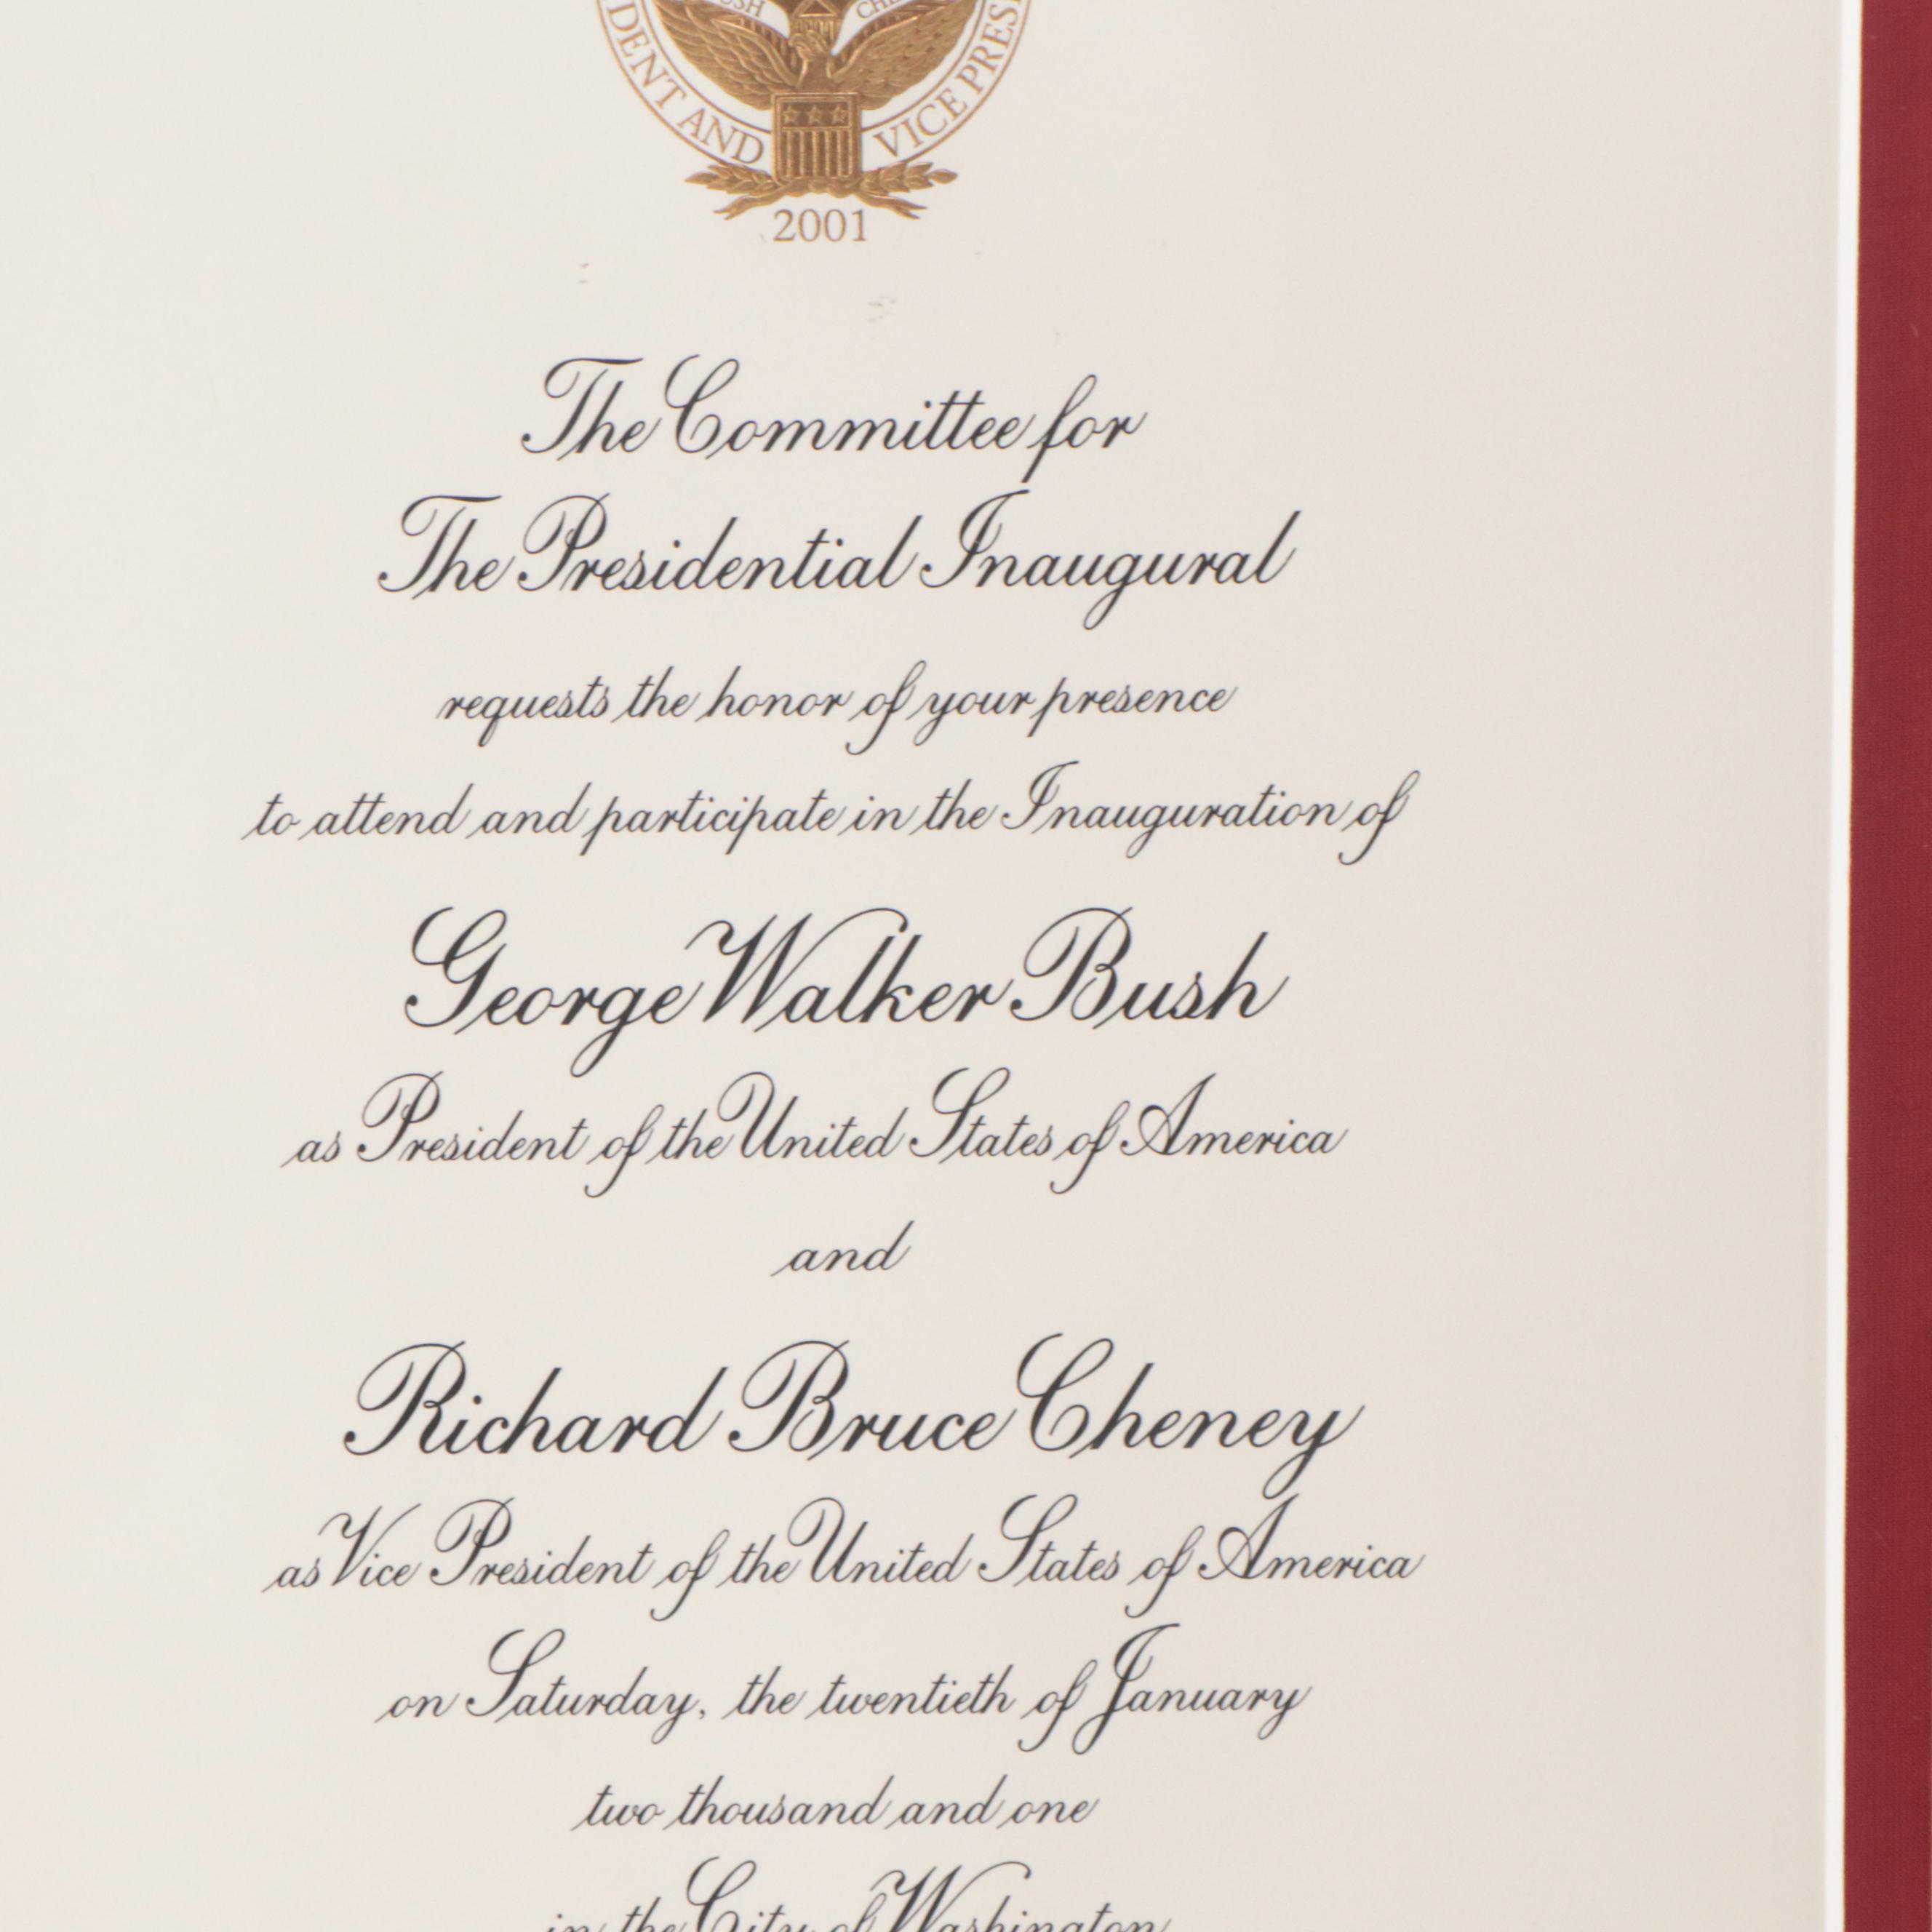 DENT AND VICE PRES
2001
The Committee for
The Presidential Inaugural
requests the honor of your presence
to attend and participate in the Inauguration of
George Walker Bush
as President of the United States of America
and
Richard Bruce Cheney
as Vice President of the United States of America
on Saturday, the twentieth of January
two thousand and one
in the City of Washington